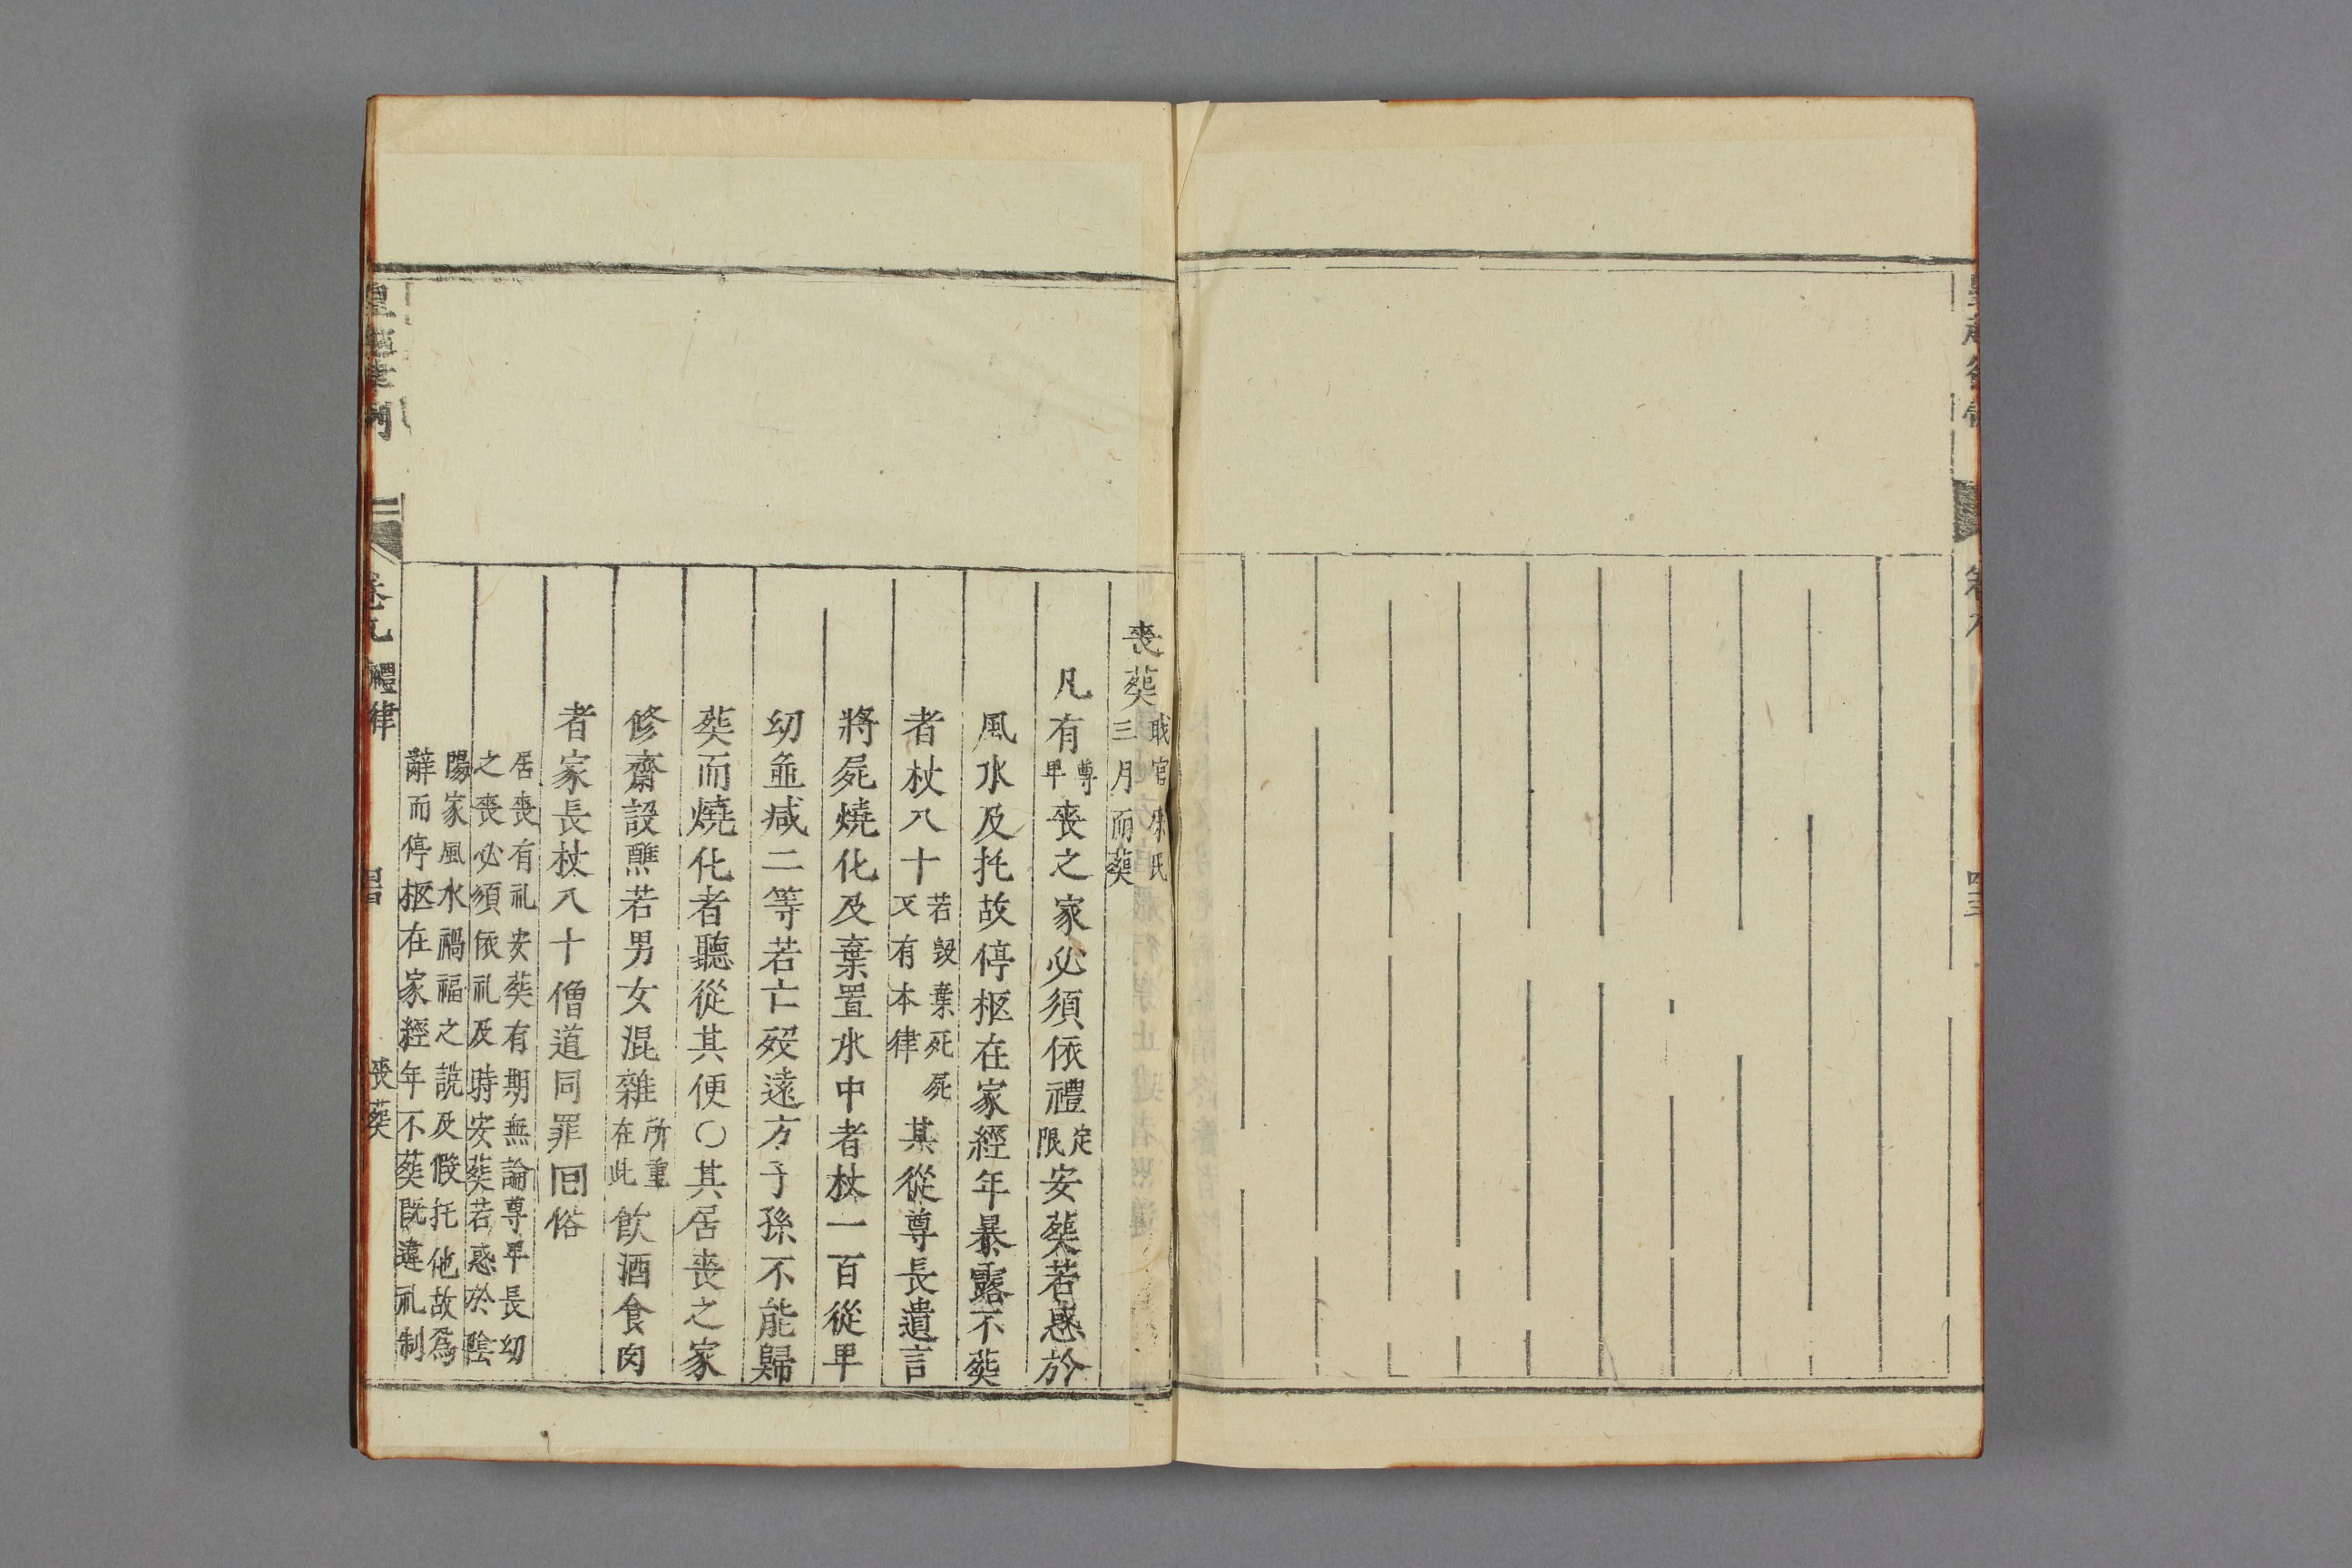 喪葬職官庶民三月而葬
凡有尊卑喪之家必須依禮定限安葬若惑於
風水及托故停柩在家經年暴露不葬
者杖八十若毀棄死屍又有本律其從尊長遺言
將屍燒化及棄置水中者杖一百從卑
幼並减二等若亡歿遠方子孫不能歸
葬而燒化者聽從其便〇其居喪之家
修齋設醮若男女混雜所重在此飲酒食肉
者家長杖八十僧道同罪囘俗
居喪有礼安葬有期無論尊卑長幼
之喪必須依礼及時安葬若惑於陰
陽家風水禍福之説及假托他故爲
辭而停柩在家經年不葬既違礼制
律例
卷九
禮律
喪葬